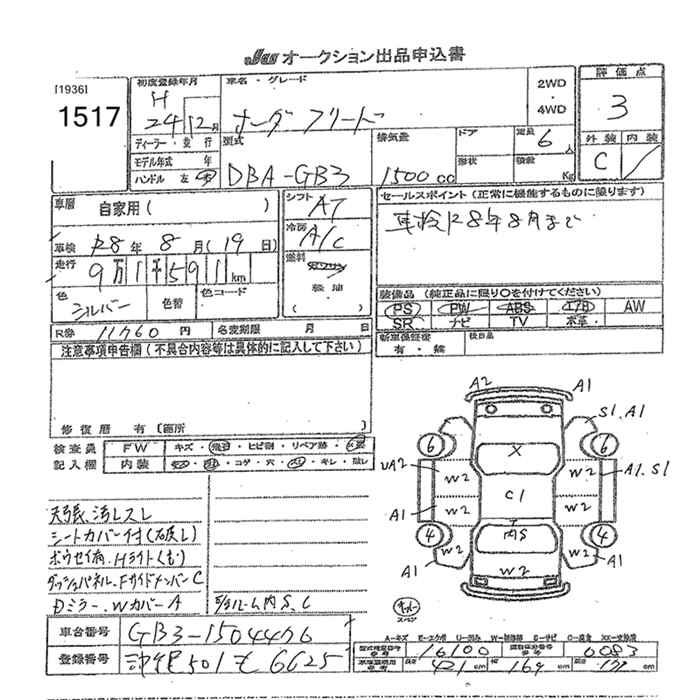 JU オークション出品申込書
[1936]
1517
初度登録年月
H
24 12月
ディーラー・並行
モデル年式 年
ハンドル 左 右
車名・グレード
ホンダ フリード
2WD
・
4WD
評価点
3
外装 内装
C
型式
DBA-GB3
排気量
1500 cc
ドア
形状
定員 6人
積載 Kg
車歴 自家用( )
車検 R8年 8月(19日)
走行 9万1千591km
色 シルバー
色替
色コード
シフト AT
冷房 A/C
燃料
ガソリン
軽油
( )
セールスポイント(正常に機能するものに限ります)
車検R8年8月まで
装備品(純正品に限り○を付けてください)
PS PW ABS エアB AW
SR ナビ TV 本革
新車保証書
有・無
後日品
R券 11760円
名変期限 月 日
注意事項申告欄(不具合内容等は具体的に記入して下さい)
修復歴 有〔箇所 〕
検査員
記入欄
FW キズ・飛石・ヒビ割・リペア跡・
内装 ・コゲ・穴・キレ・
天張、汚レスレ
シートカバー付(破レ)
ボウセイ有・Hライト(ヒ)
ダッシュパネル・FサイドメンバーC
Dミラー・WカバーA
E/ルーム内S、C
A2
A1
S1.A1
6
6
X
UA2
W2
W2
A1.S1
C1
A1
W2
W2
4
4
W2
W2
A1
A1
W2
キャリパー
スペア
A-キズ E-エクボ U-凹み W-補修跡 S-サビ C-腐食 XX-交換済
車台番号 GB3-1504476
登録番号 沖縄501 も 6625
16100
0083
長さ 421cm
幅 169cm
高さ 171cm